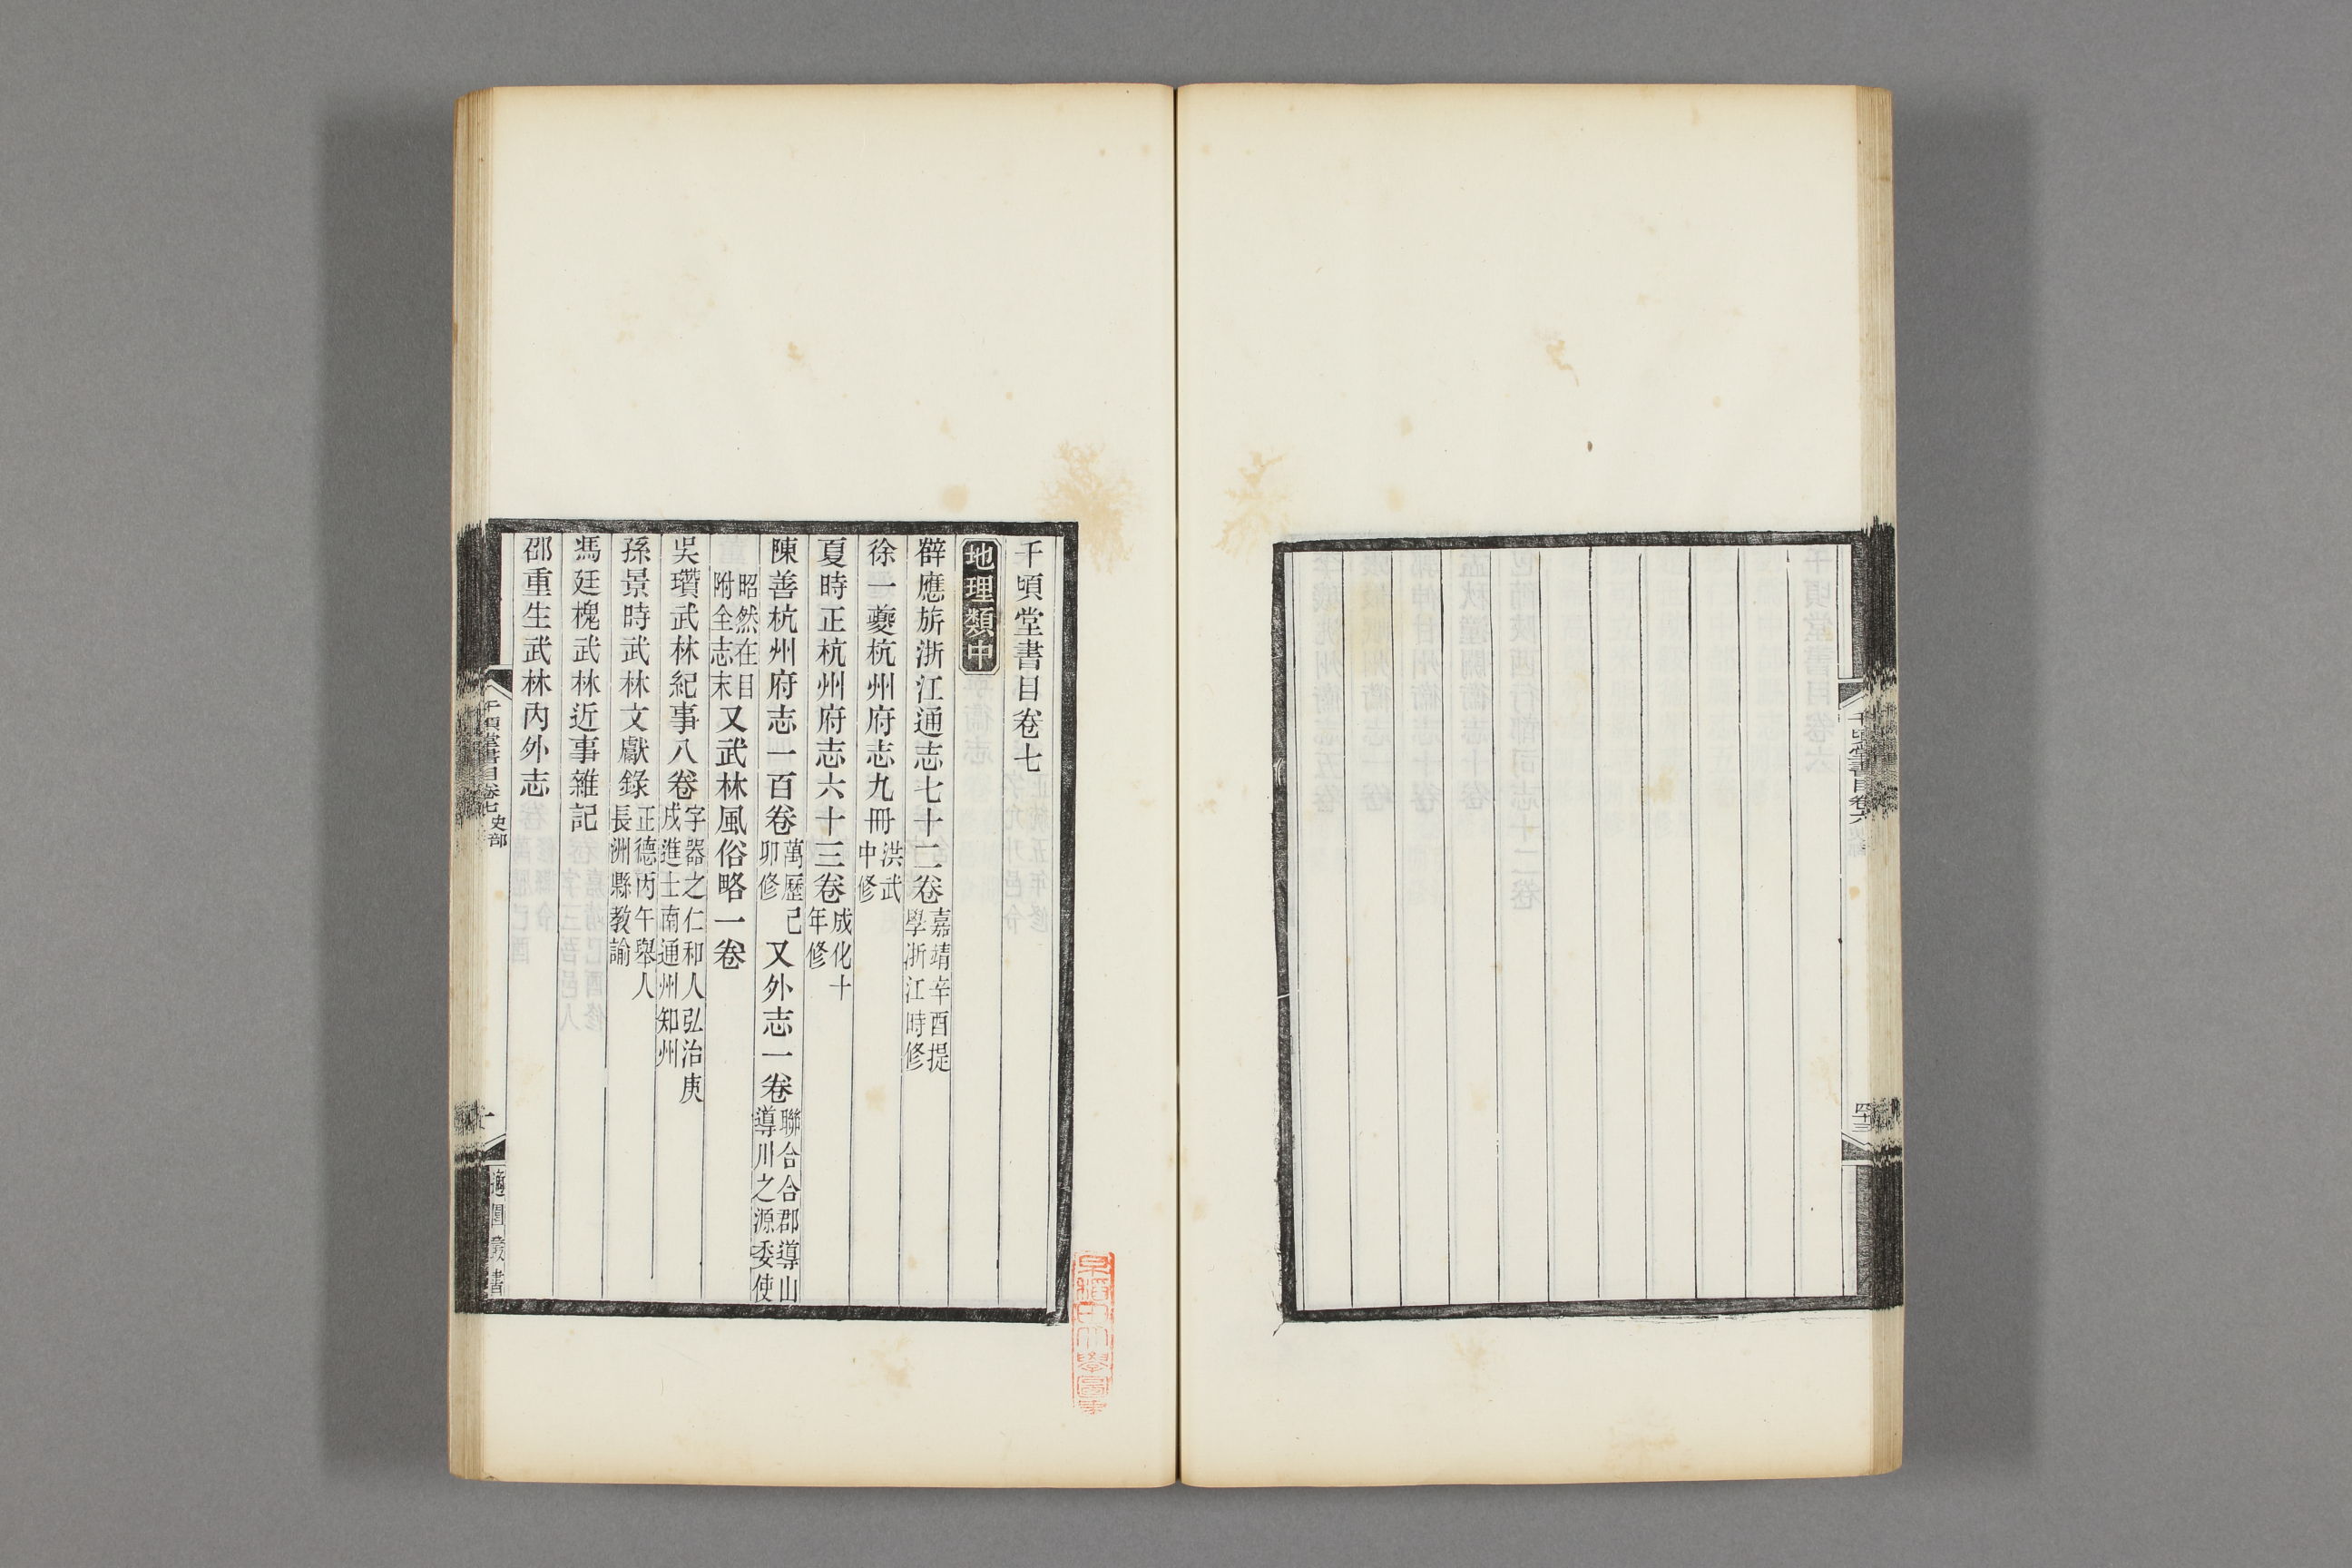 千頃堂書目卷六
四十三
千頃堂書目卷七
地理類中
薛應旂浙江通志七十二卷嘉靖辛酉提學浙江時修
徐一夔杭州府志九冊洪武中修
夏時正杭州府志六十三卷成化十年修
陳善杭州府志一百卷萬歷己卯修又外志一卷聯合合郡導山導川之源委使
昭然在目附全志末又武林風俗略一卷
吳瓚武林紀事八卷字器之仁和人弘治庚戌進士南通州知州
孫景時武林文獻錄正德丙午舉人長洲縣教諭
馮廷槐武林近事雜記
邵重生武林內外志
千頃堂書目卷七 史部
一
適園叢書